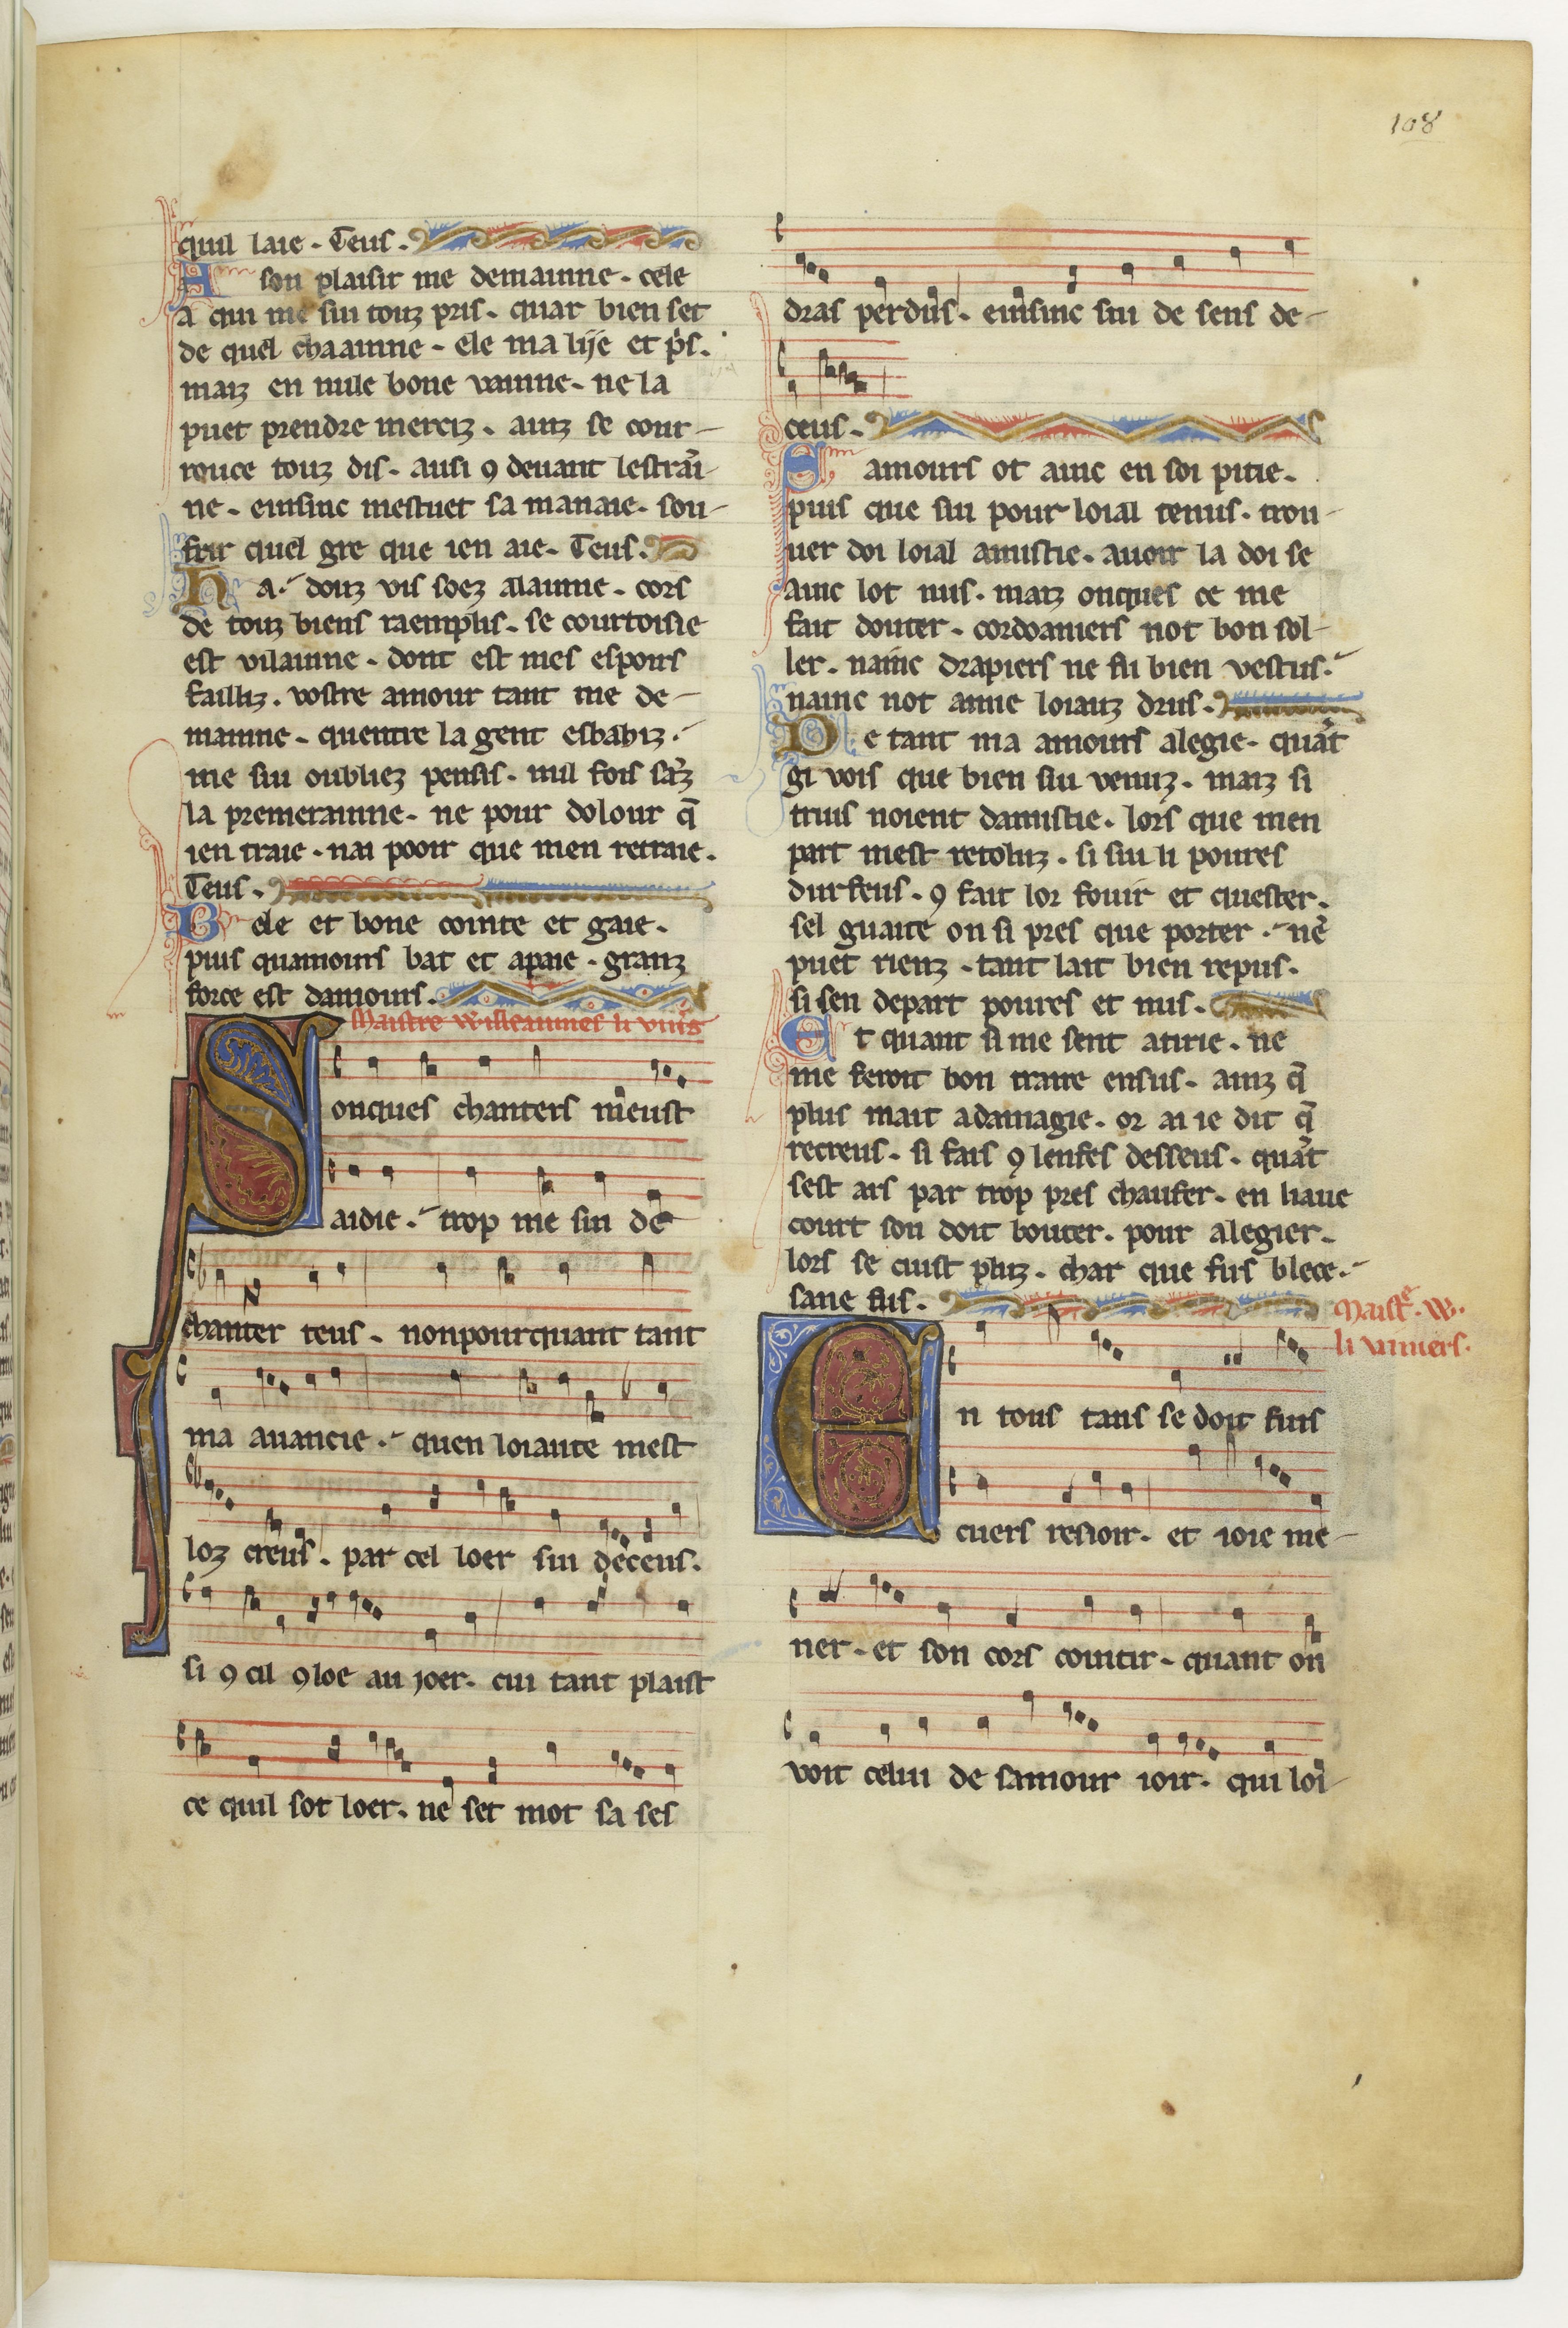 108
quil laie. Teus.
A son plaisir me demainne. cele
a qui me sui touz pris. quar bien set
de quel chaainne. ele ma lije et pris.
maiz en nule bone vainne. ne la
puet prendre merciz. ainz se cour-
rouce touz dis. ausi ꝯ deuant lestrāi-
ne. einsinc mestuet sa manaie. sou-
frir quel gre que ien aie. Teus.
Ha. douz vis soez alainne. cors
de touz biens raemplis. se courtoisie
est vilainne. dont est mes espoirs
failliz. vostre amour tant me de-
mainne. quentre la gent esbahiz.
me sui oubliez pensis. mil fois sanz
la premerainne. ne pour dolour q̄
ien traie. nai pooir que men retraie.
Teus.
Bele et bone cointe et gaie.
puis quamours bat et apaie. granz
force est damours.
Maistre willeaumes li vinīs
Sonques chanters meust
aidie. trop me sui de
chanter teus. nonpourquant tant
ma auancie. quen loiaute mest
loz creus. par cel loer sui deceus.
si ꝯ cil ꝯ loe au joer. cui tant plaist
ce quil sot loer. ne set mot sa ses
dras perdus. einsinc sui de sens de-
ceus.
S amours ot ainc en soi pitie.
puis que sui pour loial tenus. trou-
uer doi loial amistie. auoir la doi se
ainc lot nus. maiz onques ce me
fait douter. cordoaniers not bon sol-
ler. nainc drapiers ne fu bien vestus.
nainc not amie loiauz drus.
De tant ma amours alegie. quāt
gi vois que bien sui venuz. maiz si
truis noient damistie. lors que men
part mest retoluz. si sui li poures
durfeus. ꝯ fait lor fouir et quester.
sel guaite on si pres que porter. nē
puet rienz. tant lait bien repus.
si sen depart poures et nus.
Et quant si me sent atirie. ne
me feroit bon traire ensus. ainz q̄
plus mait adamagie. or ai ie dit q̄
recreus. si fais ꝯ lenfes desseus. quāt
sest ars par trop pres chaufer. en liaue
court son doit bouter. pour alegier.
lors se cuist pluz. char que fus blece.
sane fus.
Maistͤ. W.
li viniers.
En tous tans se doit fins
cuers resioir. et ioie me-
ner. et son cors cointir. quant on
voit celui de samour ioir. qui loi-